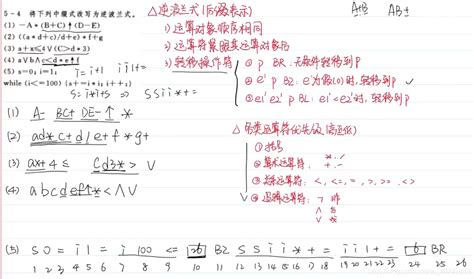 5-4 将下列中缀式改写为逆波兰式。
(1) -A*(B+C)↑(D-E)
(2) ((a*d+c)/d+e)*f+g
(3) a+x≤4∨(C>d*3)
(4) a∨b∧c<d*e↑f
(5) s=0; i=1; i=i+1 ii1+=
while (i<=100) {s+=i*i; i++;}
S=i*i+S ⇒ Ssii*+=
△逆波兰式 (后缀表示)
1) 运算对象顺序相同
2) 运算符紧跟运算对象后
3) 转移操作符
① P BR 无条件转移到P
② e' P BZ : e'为假(0)时, 转移到P ✓
③ e1' e2' P BL : e1'<e2'时, 转移到P
A+B AB+
△ 各类运算符优先级 (高→低)
① 括号
② 算术运算符: *、/
+、-
③ 关系运算符: <, <=, =, >, >=, <>
④ 逻辑运算符: ㄱ 非
∧ 与
∨ 或
(1) A- BC+ DE- ↑ *
(2) ad*c+d/e+f*g+
(3) ax+4≤ Cd3*> ∨
(4) abcdef↑*<∧∨
(5) S 0 = i 1 = i 100 <= 26 BZ S S i i * + = i i 1 + = 6 BR
1 2 3 4 5 6 7 8 9 10 11 12 13 14 15 16 17 18 19 20 21 22 23 24 25 26